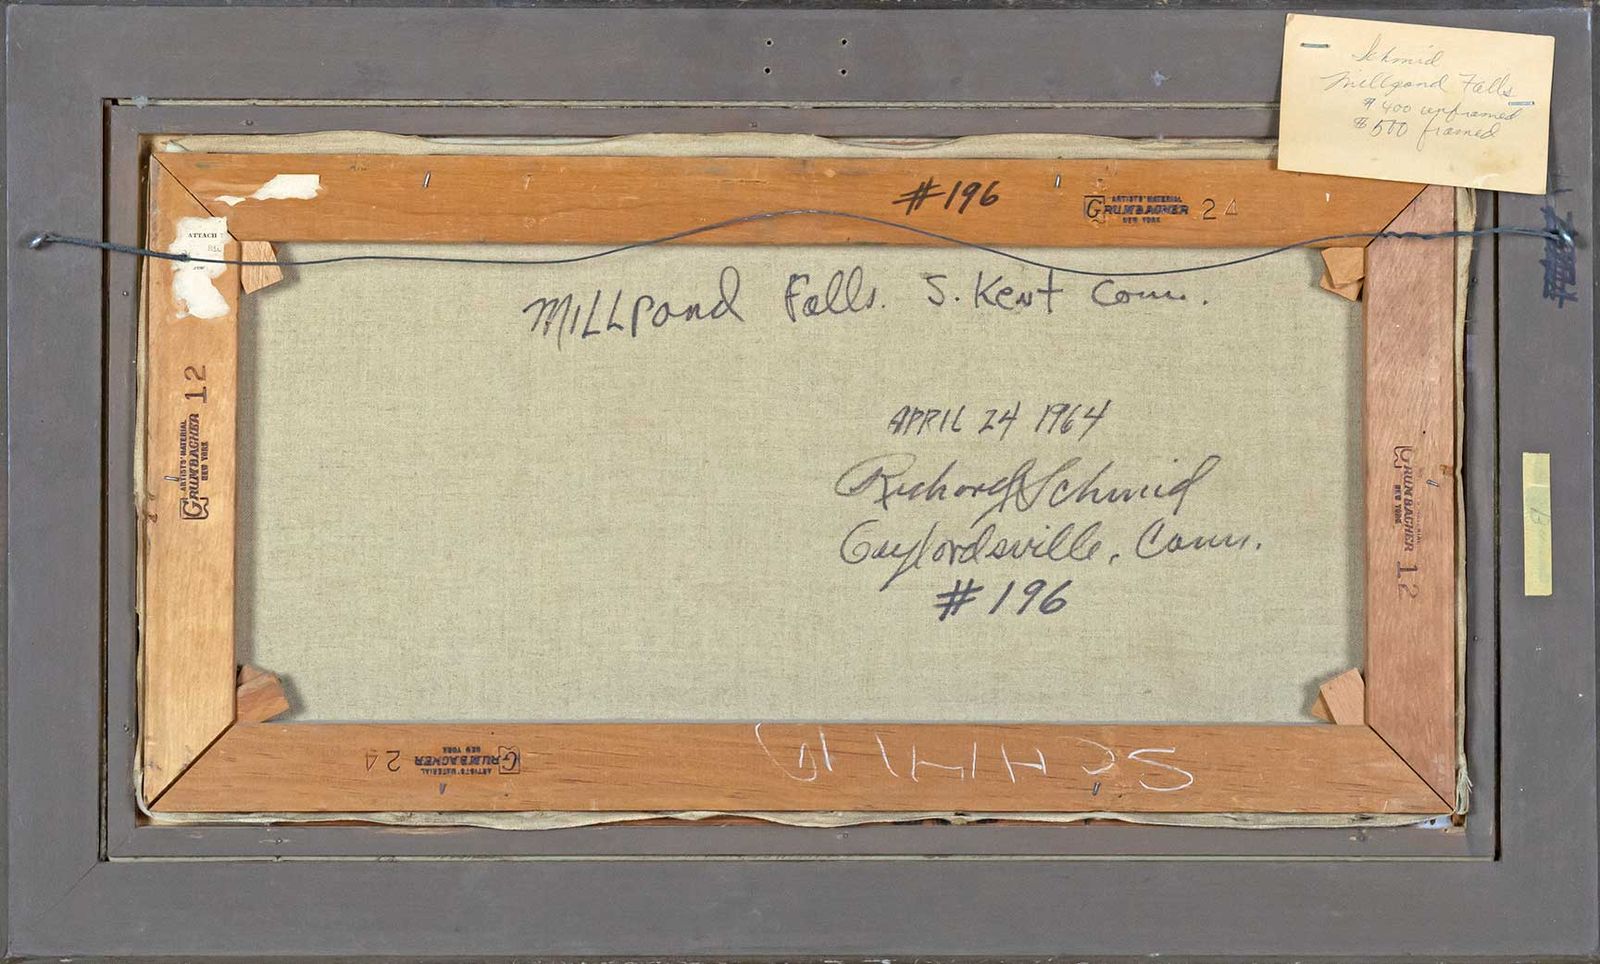 Schmid
Millpond Falls
$400 unframed
$500 framed
#196
ARTISTS' MATERIAL
GRUMBACHER 24
NEW YORK
ATTACH
Millpond Falls. S. Kent Conn.
ARTISTS' MATERIAL
GRUMBACHER 12
NEW YORK
APRIL 24 1964
Richard Schmid
Gaylordsville, Conn.
#196
GRUMBACHER 12
NEW YORK
ARTISTS' MATERIAL
GRUMBACHER 24
NEW YORK
SCHMID